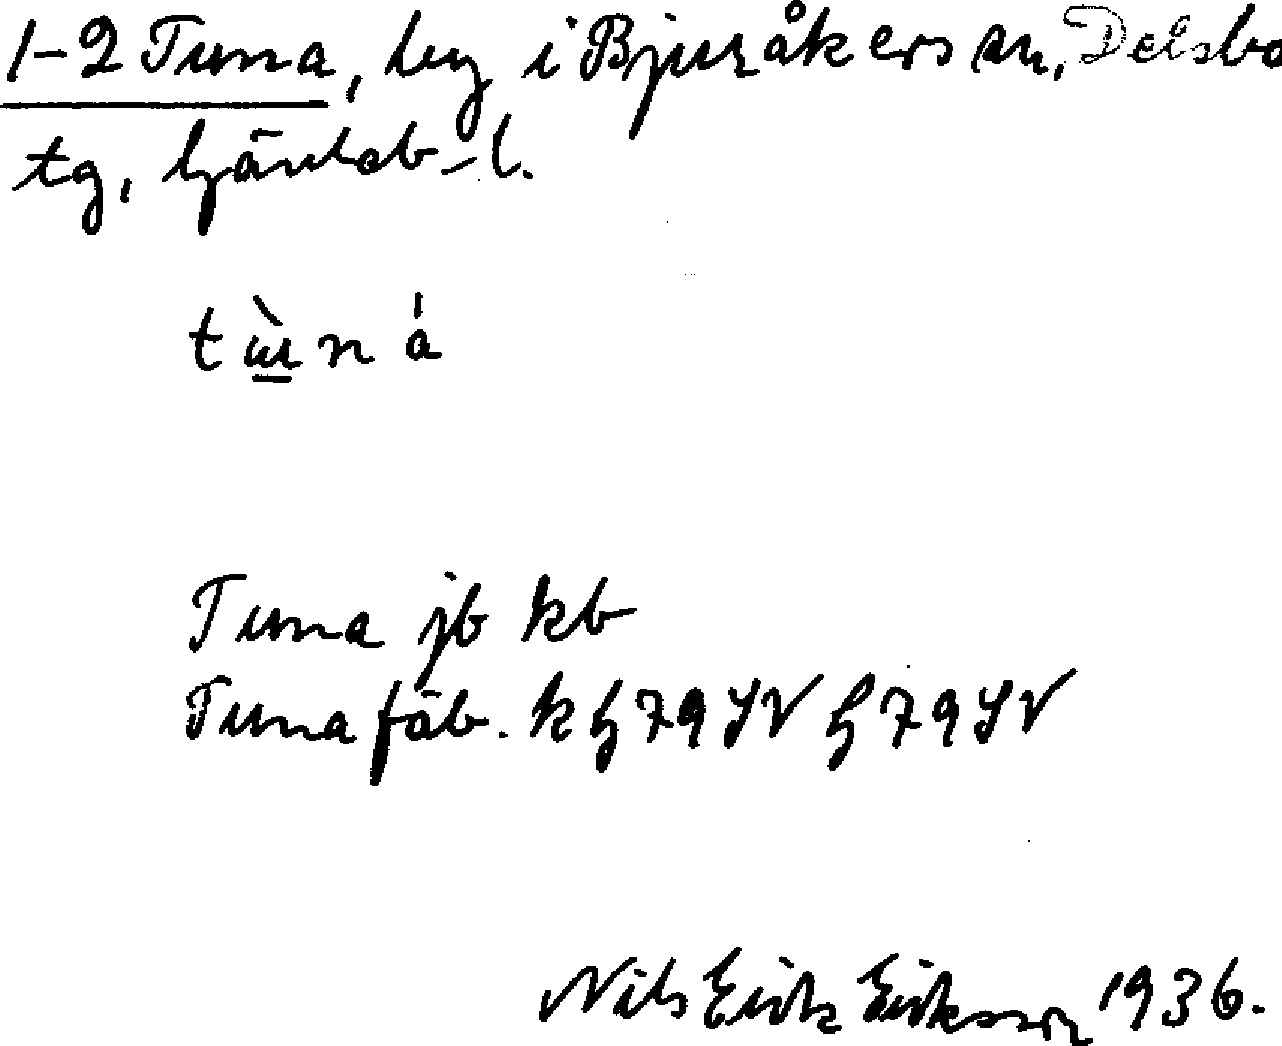 1-2 Tuna, by i Bjuråkers sn, Delsbo
tg, Gävleb-l.
tùná
Tuna jb kb
Tuna fäb. k h 79 SV h 79 SV
Nils Erik Eriksson 1936.